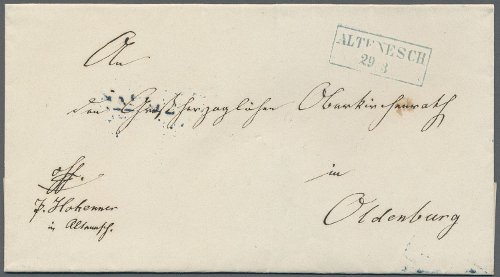 An
ALTENESCH
29 3
den Großherzoglichen Oberkirchenrath
in
Oldenburg
off.
in Altenesch.